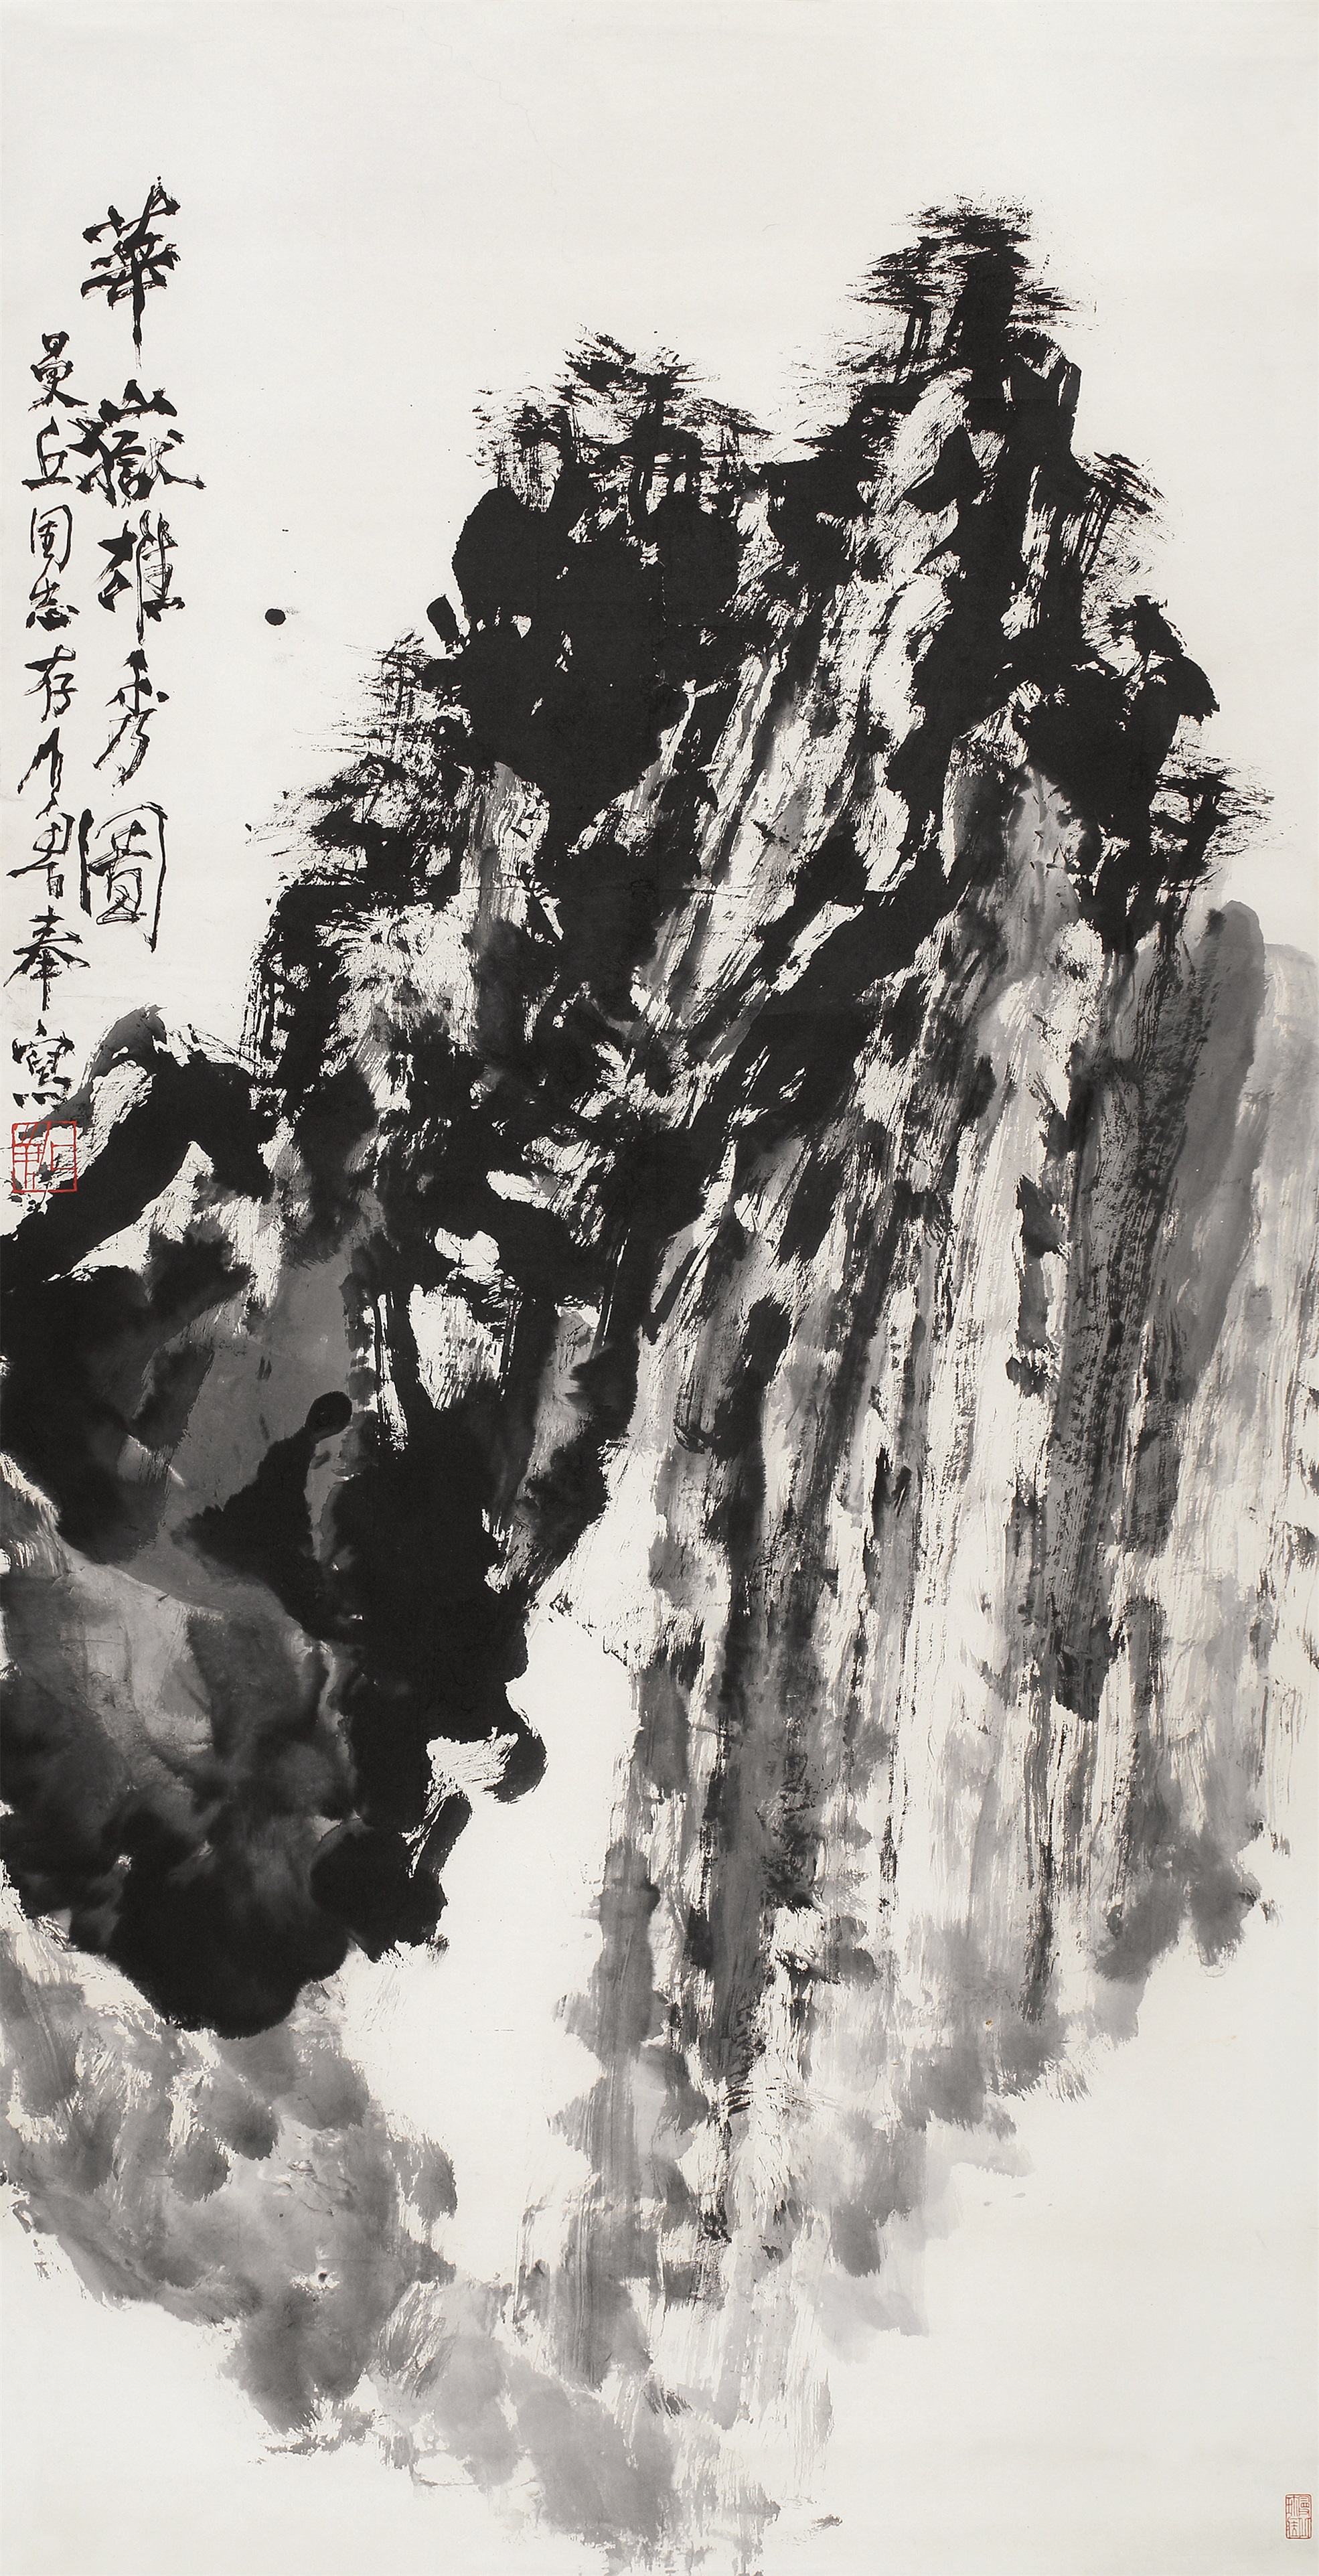 華嶽雄秀圖
曼丘同志存 石魯奉寫